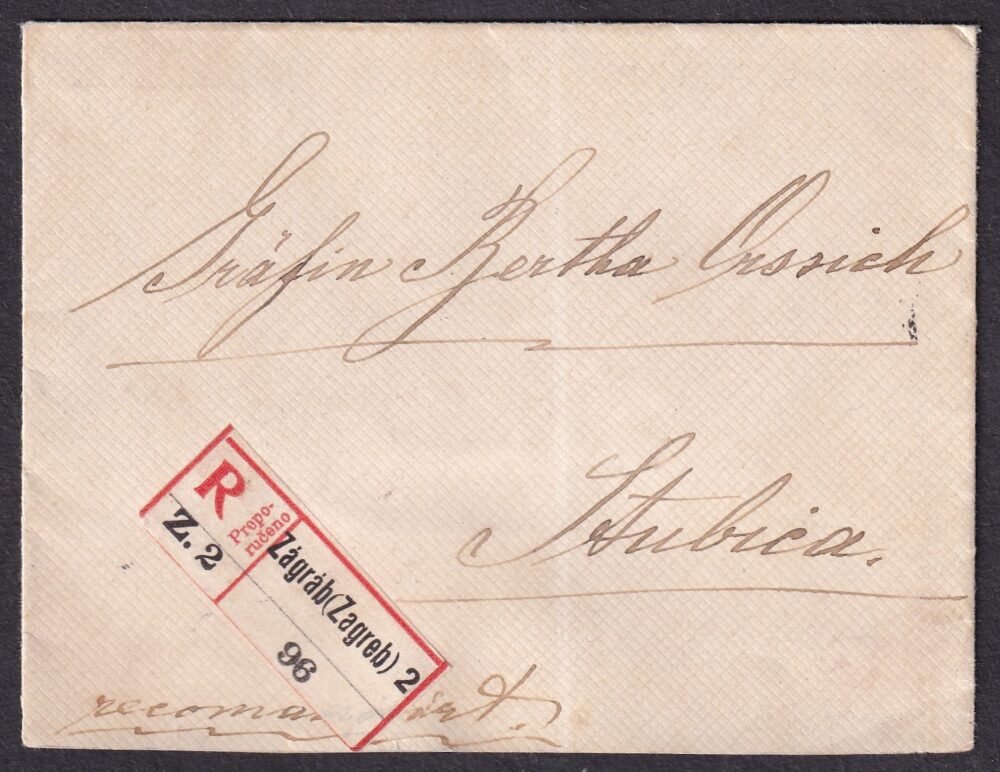 Gräfin Bertha Orssich
Stubica.
R
Prepo-
ručeno
Z. 2
Zágráb (Zagreb) 2
96